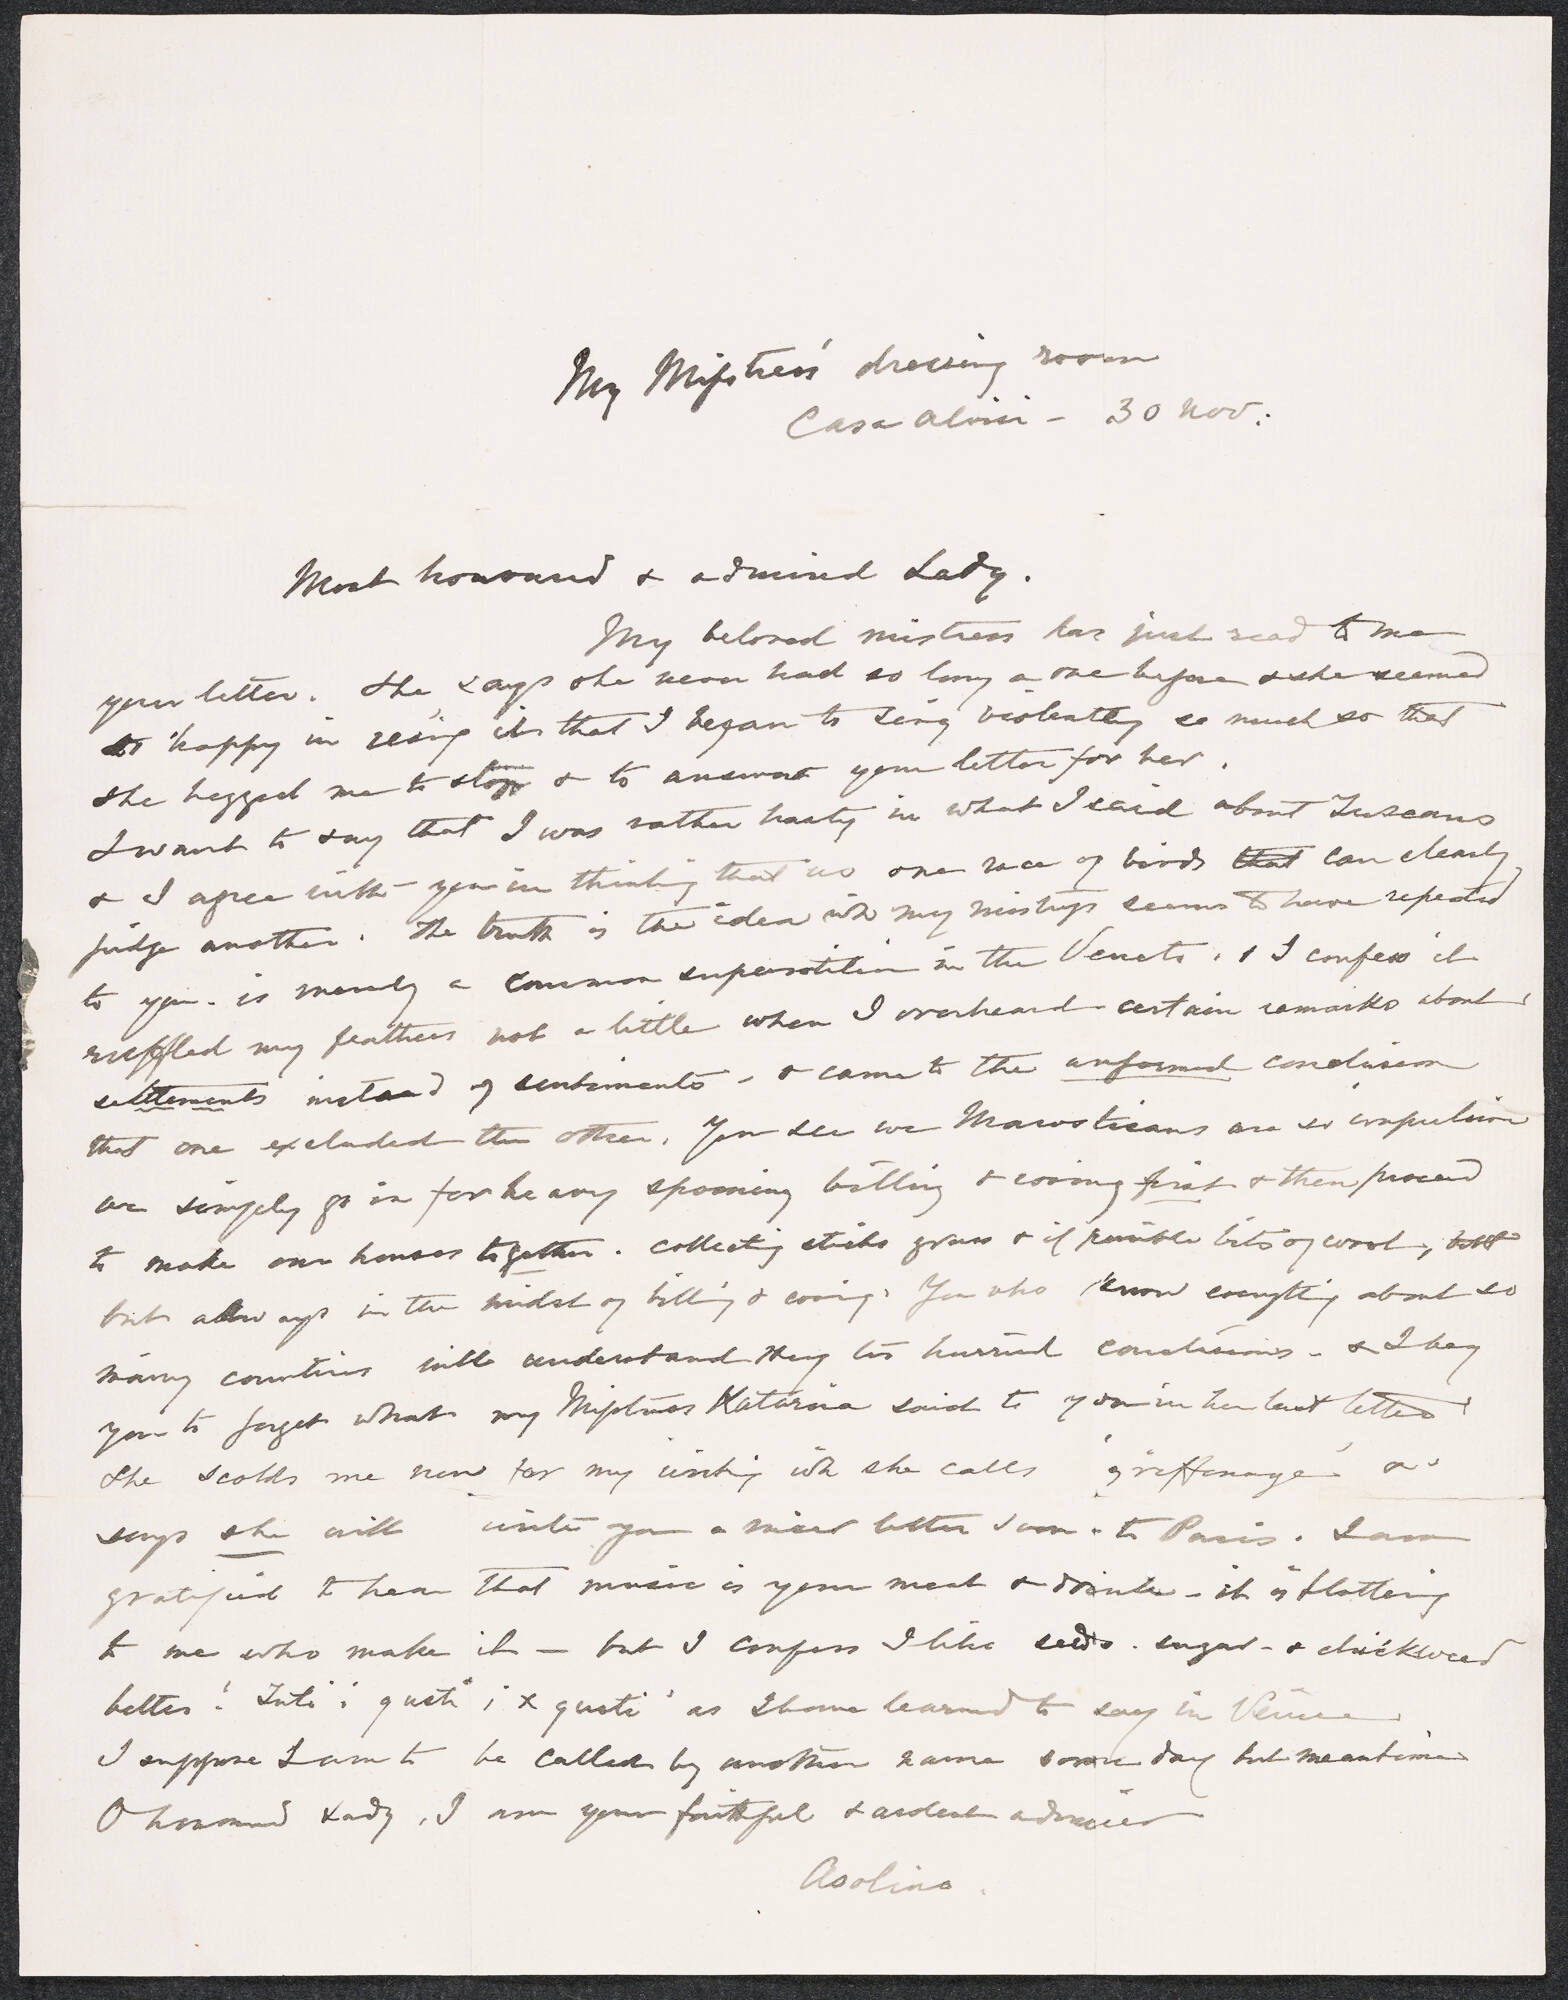 My Mistress' dressing room
Casa Alvisi - 30 Nov:
Most honoured & admired Lady.
My beloved mistress has just read to me
your letter. She says she never had so long a one before & she seemed
so happy in it that I began to sing violently so much so that
she begged me to stop & to answer your letter for her.
I want to say that I was rather hasty in what I said about Tuscans
& I agree with you in thinking that no one race of birds that can clearly
judge another. The truth is the idea wh my mistress seems to have repeated
to you - is merely a common superstition in the Veneto, & I confess it
ruffled my feathers not a little when I overheard certain remarks about
settlements instead of sentiments - & came to the unformed conclusion
that one excluded the other. You see we Marosticans are so impulsive
we simply go in for heavy spooning billing & cooing first & then proceed
to make our houses together. collecting sticks grass & if possible bits of wool,
but always in the midst of billing & cooing. You who know everything about so
many countries will understand my hurried conclusions - & I beg
you to forget what my Mistress Katarina said to you in her last letter.
She scolds me now for my writing wh she calls 'griffonage' &
says she will write you a nicer letter soon - to Paris. I am
gratified to hear that music is your meat & drink - it is flattering
to me who make it - but I confess I like seeds. sugar - & chickweed
better! Tuti i gusti i x gusti' as I have learned to say in Venice.
I suppose I am to be called by another name some day but meantime
O honoured Lady, I am your faithful & ardent admirer
Asolino.